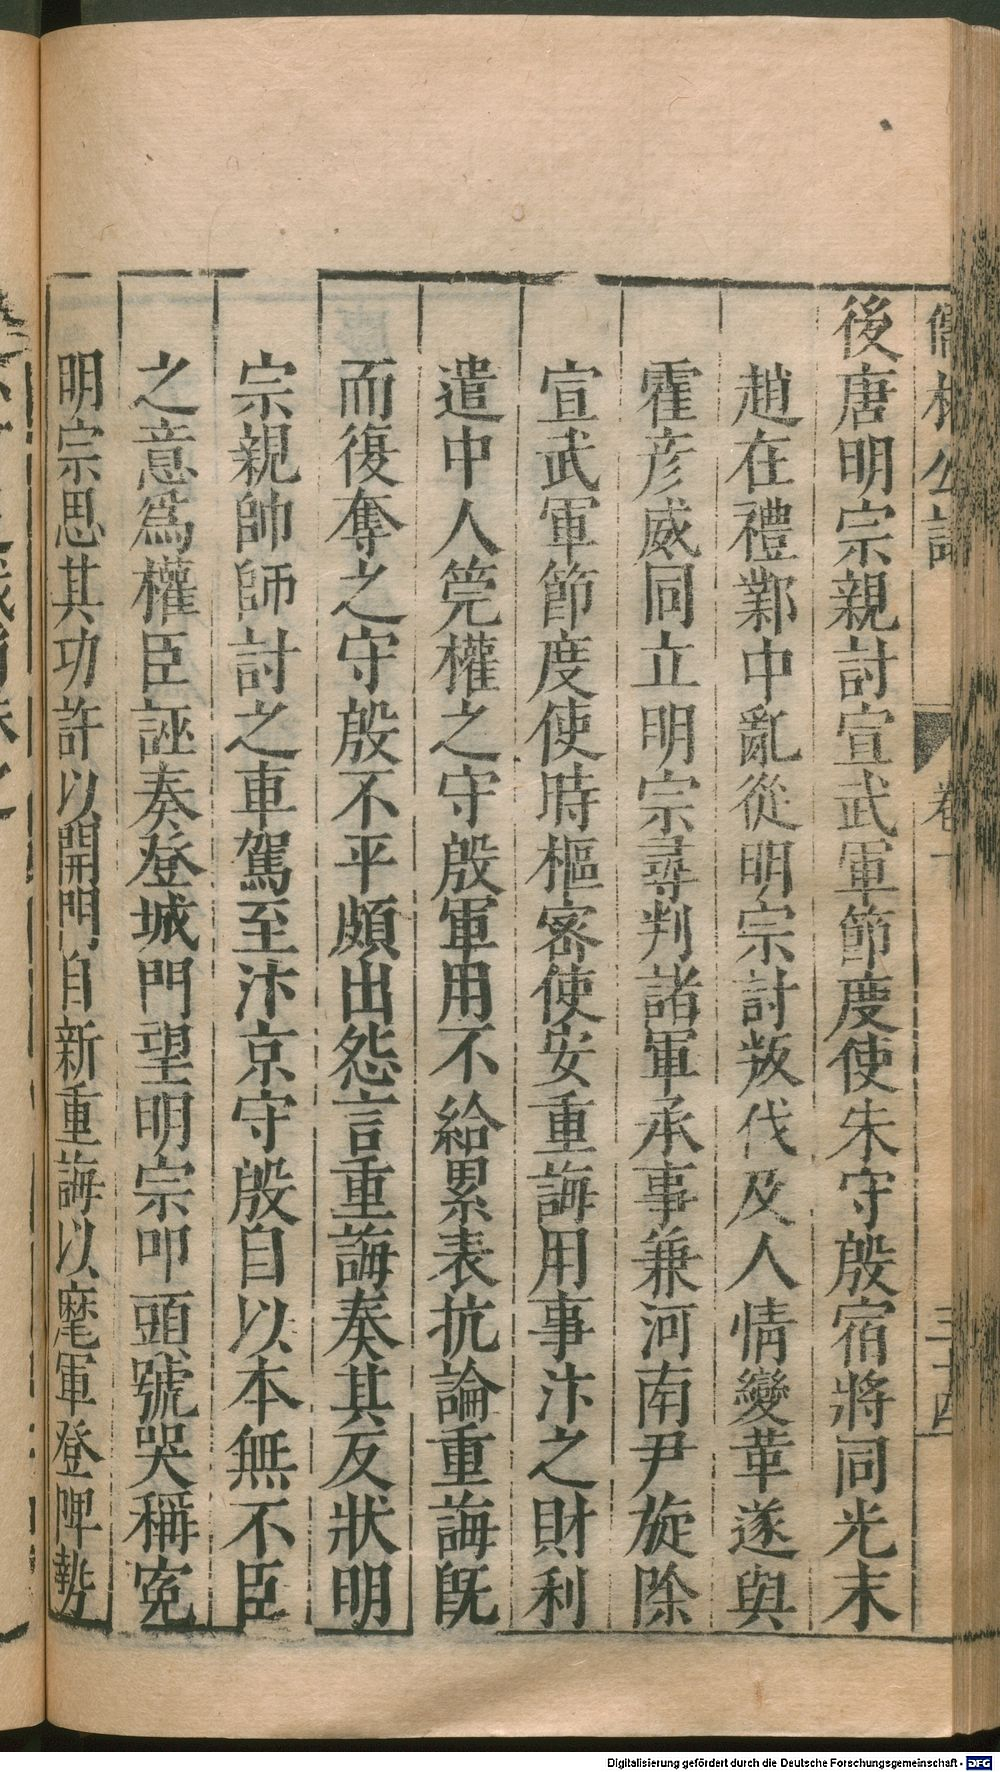 後唐明宗親討宣武軍節度使朱守殷宿將同光末
趙在禮鄴中亂從明宗討叛伐及人情變革遂與
霍彥威同立明宗尋判諸軍承事兼河南尹旋除
宣武軍節度使時樞密使安重誨用事汴之財利
遣中人筦權之守殷軍用不給累表抗論重誨旣
而復奪之守殷不平頗出怨言重誨奏其反狀明
宗親帥師討之車駕至汴京守殷自以本無不臣
之意爲權臣誣奏登城門望明宗叩頭號哭稱寃
明宗思其功許以開門自新重誨以麾軍登陴勢
Digitalisierung gefördert durch die Deutsche Forschungsgemeinschaft - DFG